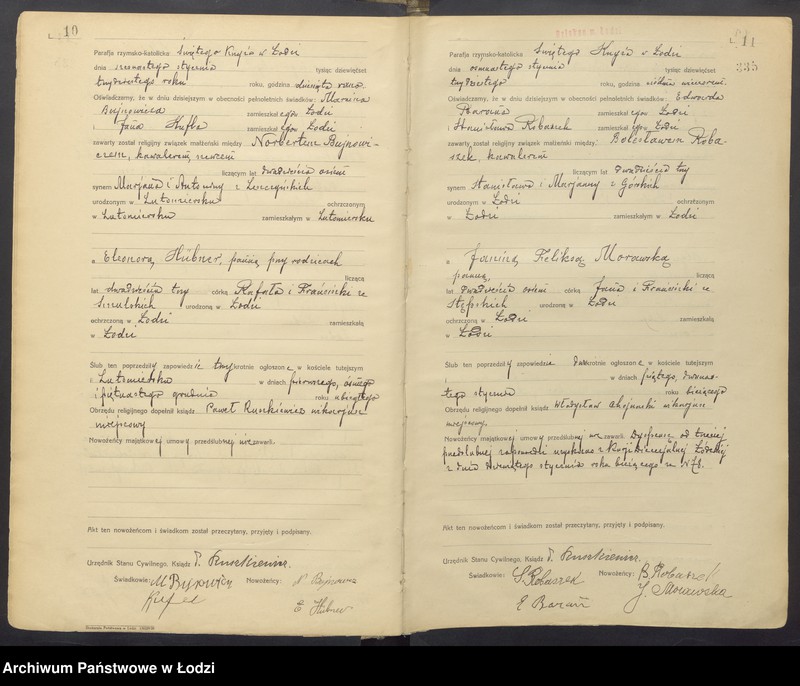 10
Parafja rzymsko-katolicka Świętego Krzyża w Łodzi
dnia szesnastego stycznia tysiąc dziewięćset
trzydziestego roku roku, godzina dziesiąta rano.
Oświadczamy, że w dniu dzisiejszym w obecności pełnoletnich świadków: Marcina
Bujnowicza zamieszkał ego w Łodzi
i Jana zamieszkał ego w Łodzi
zawarty został religijny związek małżeński między Norbertem Bujnowi-
czem, kawalerem,
liczącym lat dwadzieścia osiem
synem Marjana i Antoniny z Leszczyńskich
urodzonym w Lutomiersku ochrzczonym
w Lutomiersku zamieszkałym w Lutomiersku
a Eleonorą Hübner, panną, przy rodzicach
liczącą
lat dwadzieścia trzy córką Rafała i Franciszki ze
Szulskich urodzoną w Łodzi
ochrzczoną w Łodzi zamieszkałą
w Łodzi
Ślub ten poprzedziły zapowiedzie trzykrotnie ogłoszone w kościele tutejszym
i Lutomiersku w dniach pierwszego, ósmego
i piętnastego grudnia roku ubiegłego
Obrzędu religijnego dopełnił ksiądz Paweł Ruszkiewicz wikarjusz
miejscowy
Nowożeńcy majątkowej umowy przedślubnej nie zawarli.
Akt ten nowożeńcom i świadkom został przeczytany, przyjęty i podpisany.
Urzędnik Stanu Cywilnego, Ksiądz
Świadkowie: Nowożeńcy:
E Hübner
11
335
Parafja rzymsko-katolicka Świętego Krzyża w Łodzi
dnia osiemnastego stycznia tysiąc dziewięćset
trzydziestego roku, godzina siódma wieczorem.
Oświadczamy, że w dniu dzisiejszym w obecności pełnoletnich świadków: Edwarda
Barana zamieszkał ego w Łodzi
i Stanisława Robaszek zamieszkał ego w Łodzi
zawarty został religijny związek małżeński między: Bolesławem Roba-
szek, kawalerem
liczącym lat dwadzieścia trzy
synem Stanisława i Marjanny z Górskich
urodzonym w Łodzi ochrzczonym
w Łodzi zamieszkałym w Łodzi
a Janiną Feliksą Morawską
panną, liczącą
lat dwadzieścia osiem córką Jana i Franciszki ze
urodzoną w Łodzi
ochrzczoną w Łodzi zamieszkałą
w Łodzi
Ślub ten poprzedziły zapowiedzie dwukrotnie ogłoszone w kościele tutejszym
i w dniach piątego, dwunas-
tego stycznia roku bieżącego
Obrzędu religijnego dopełnił ksiądz Władysław Chojnacki wikarjusz
miejscowy.
Nowożeńcy majątkowej umowy przedślubnej nie zawarli. Dyspensę od trzeciej
przedślubnej zapowiedzi uzyskano z Kurji Diecezjalnej Łódzkiej
z dnia dziewiątego stycznia roku bieżącego za N
Akt ten nowożeńcom i świadkom został przeczytany, przyjęty i podpisany.
Urzędnik Stanu Cywilnego, Ksiądz
Świadkowie: S. Robaszek Nowożeńcy: B. Robaszek
E Baran J. Morawska
Archiwum Państwowe w Łodzi